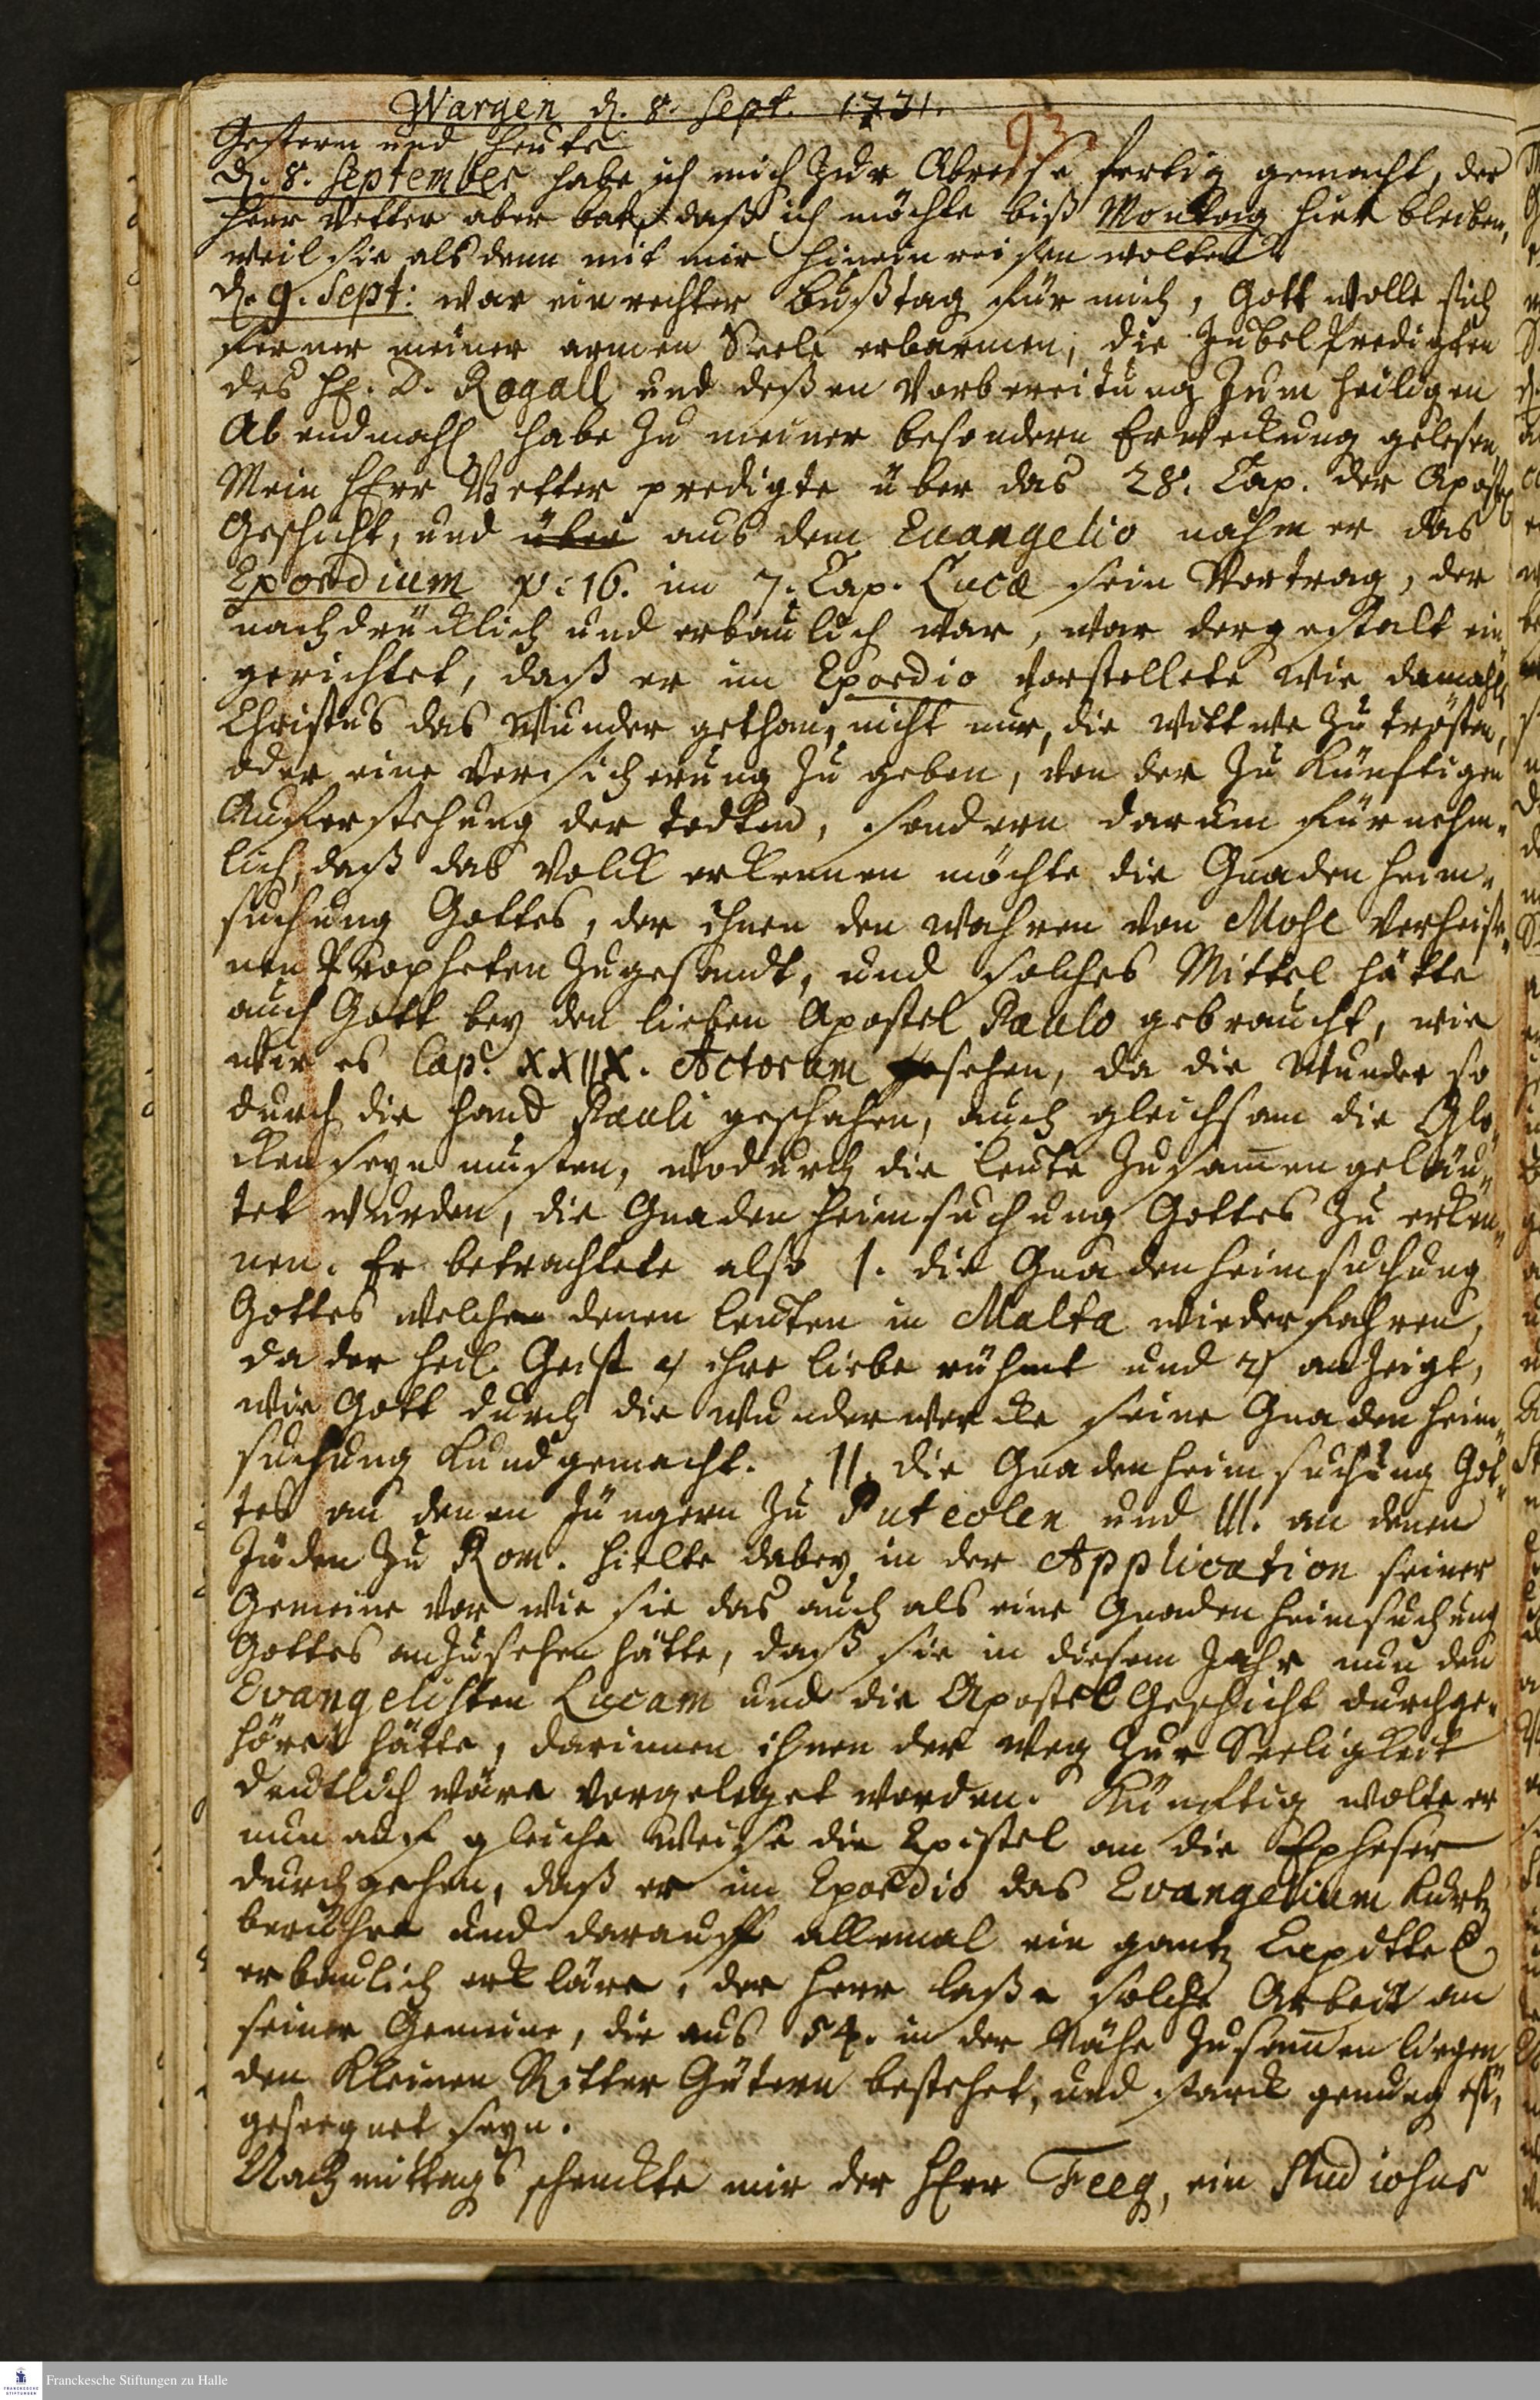 Wargen d. 8. Sept. 1731.
93
Gestern und heute
d. 8. September habe ich mich zur Abreise fertig gemacht, der
Herr Vetter aber bat, daß ich möchte biß Montag hier bleiben,
weil sie alsdenn mit mir hinein reisen wolten.
d. 9. Sept: war ein rechter Bußtag für mich, Gott wolle sich
ferner meiner armen Seele erbarmen, die Jubelpredigten
des H. D. Rogall und deßen Vorbereitung zum heiligen
Abendmahl habe zu meiner besondern Erweckung gelesen,
Mein HErr Vetter predigte über das 28. Cap. der Apostel
Geschicht, und über aus dem Euangelio nahm er das
Exordium v. 16. im 7. Cap. Lucæ sein Vortrag, der
nachdrücklich und erbaulich war, war dergestalt ein
gerichtet, daß er im Exordio vorstellete wie damahls
Christus das Wunder gethan, nicht nur, die Wittwe zu trösten,
oder eine Versicherung zu geben, von der zukünftigen
Auferstehung der Todten, sondern darum fürnehm-
lich, daß das Volck erkennen möchte die Gnadenheim-
suchung Gottes, der ihnen den wahren von Mose verheiße-
nen Propheten zugesandt, und solches Mittel hätte
auch Gott bey den lieben Apostel Paulo gebraucht, wie
wir es Cap. XXIIX. Actorum sehen, da die Wunder so
durch die Hand Pauli geschahen, auch gleichsam die Glo-
cken seyn musten, wodurch die Leute zusam̅en geläu-
tet wurden, die Gnadenheimsuchung Gottes zu erken-
nen. Er betrachtete also I. die Gnadenheimsuchung
Gottes welche denen Leuten in Malta wiederfahren,
da der heil. Geist 1) ihre Liebe rühmt und 2) anzeigt,
wie Gott durch die Wunderwercke seine Gnadenheim-
suchung kundgemacht. II. die Gnadenheimsuchung Got-
tes an denen Jüngern zu Puteolen und III. an denen
Jüden zu Rom. hielte dabey in der Application seiner
Gemeine vor wie sie das auch als eine Gnadenheimsuchung
Gottes anzusehen hätte, daß sie in diesem Jahr nun den
Evangelisten Lucam und die Apostel Geschicht durchge-
höret hätte, darinnen ihnen der Weg zur Seeligkeit
deutlich wäre vorgeleget worden. Künftig wolte er
nun auf gleiche Weise die Epistel an die Epheser
durchgehen, daß er im Exordio das Evangelium kurtz
berühre und darauff allemal ein gantz Capittel
erbaulich erkläre, der Herr laße solche Arbeit an
seiner Gemeine, die aus 54. in der Nähe zusam̅en liegen
den kleinen Ritter Gütern bestehet, und starck genung ist,
geseegnet seyn.
Nachmittags schenckte mir der HErr Feeg, ein Studiosus
Franckesche Stiftungen zu Halle